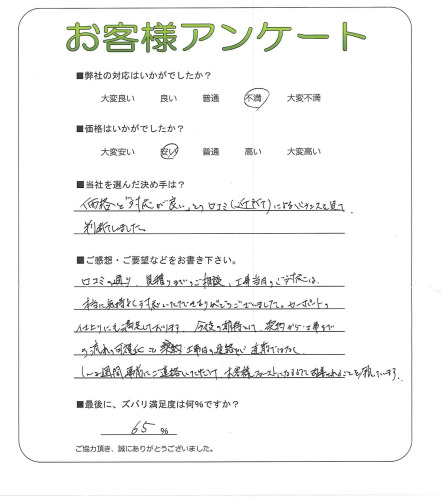 お客様アンケート
■弊社の対応はいかがでしたか？
大変良い 良い 普通 不満 大変不満
■価格はいかがでしたか？
大変安い 安い 普通 高い 大変高い
■当社を選んだ決め手は？
価格と「対応が良い」との口コミ(近所)によるバランスを見て、
判断しました。
■ご感想・ご要望などをお書き下さい。
口コミの通り、見積りまでのご相談、工事当日のご対応は、
本当に気持よく対応いただきありがとうございました。カーポートの
仕上りにも満足しております。今後の期待として、契約から工事まで
の流れの可視化 契約 工事日の連絡が直前ではなく、
1〜2週間 事前にご連絡いただけ お客様ファーストになるように
■最後に、ズバリ満足度は何%ですか？
65 %
ご協力頂き、誠にありがとうございました。